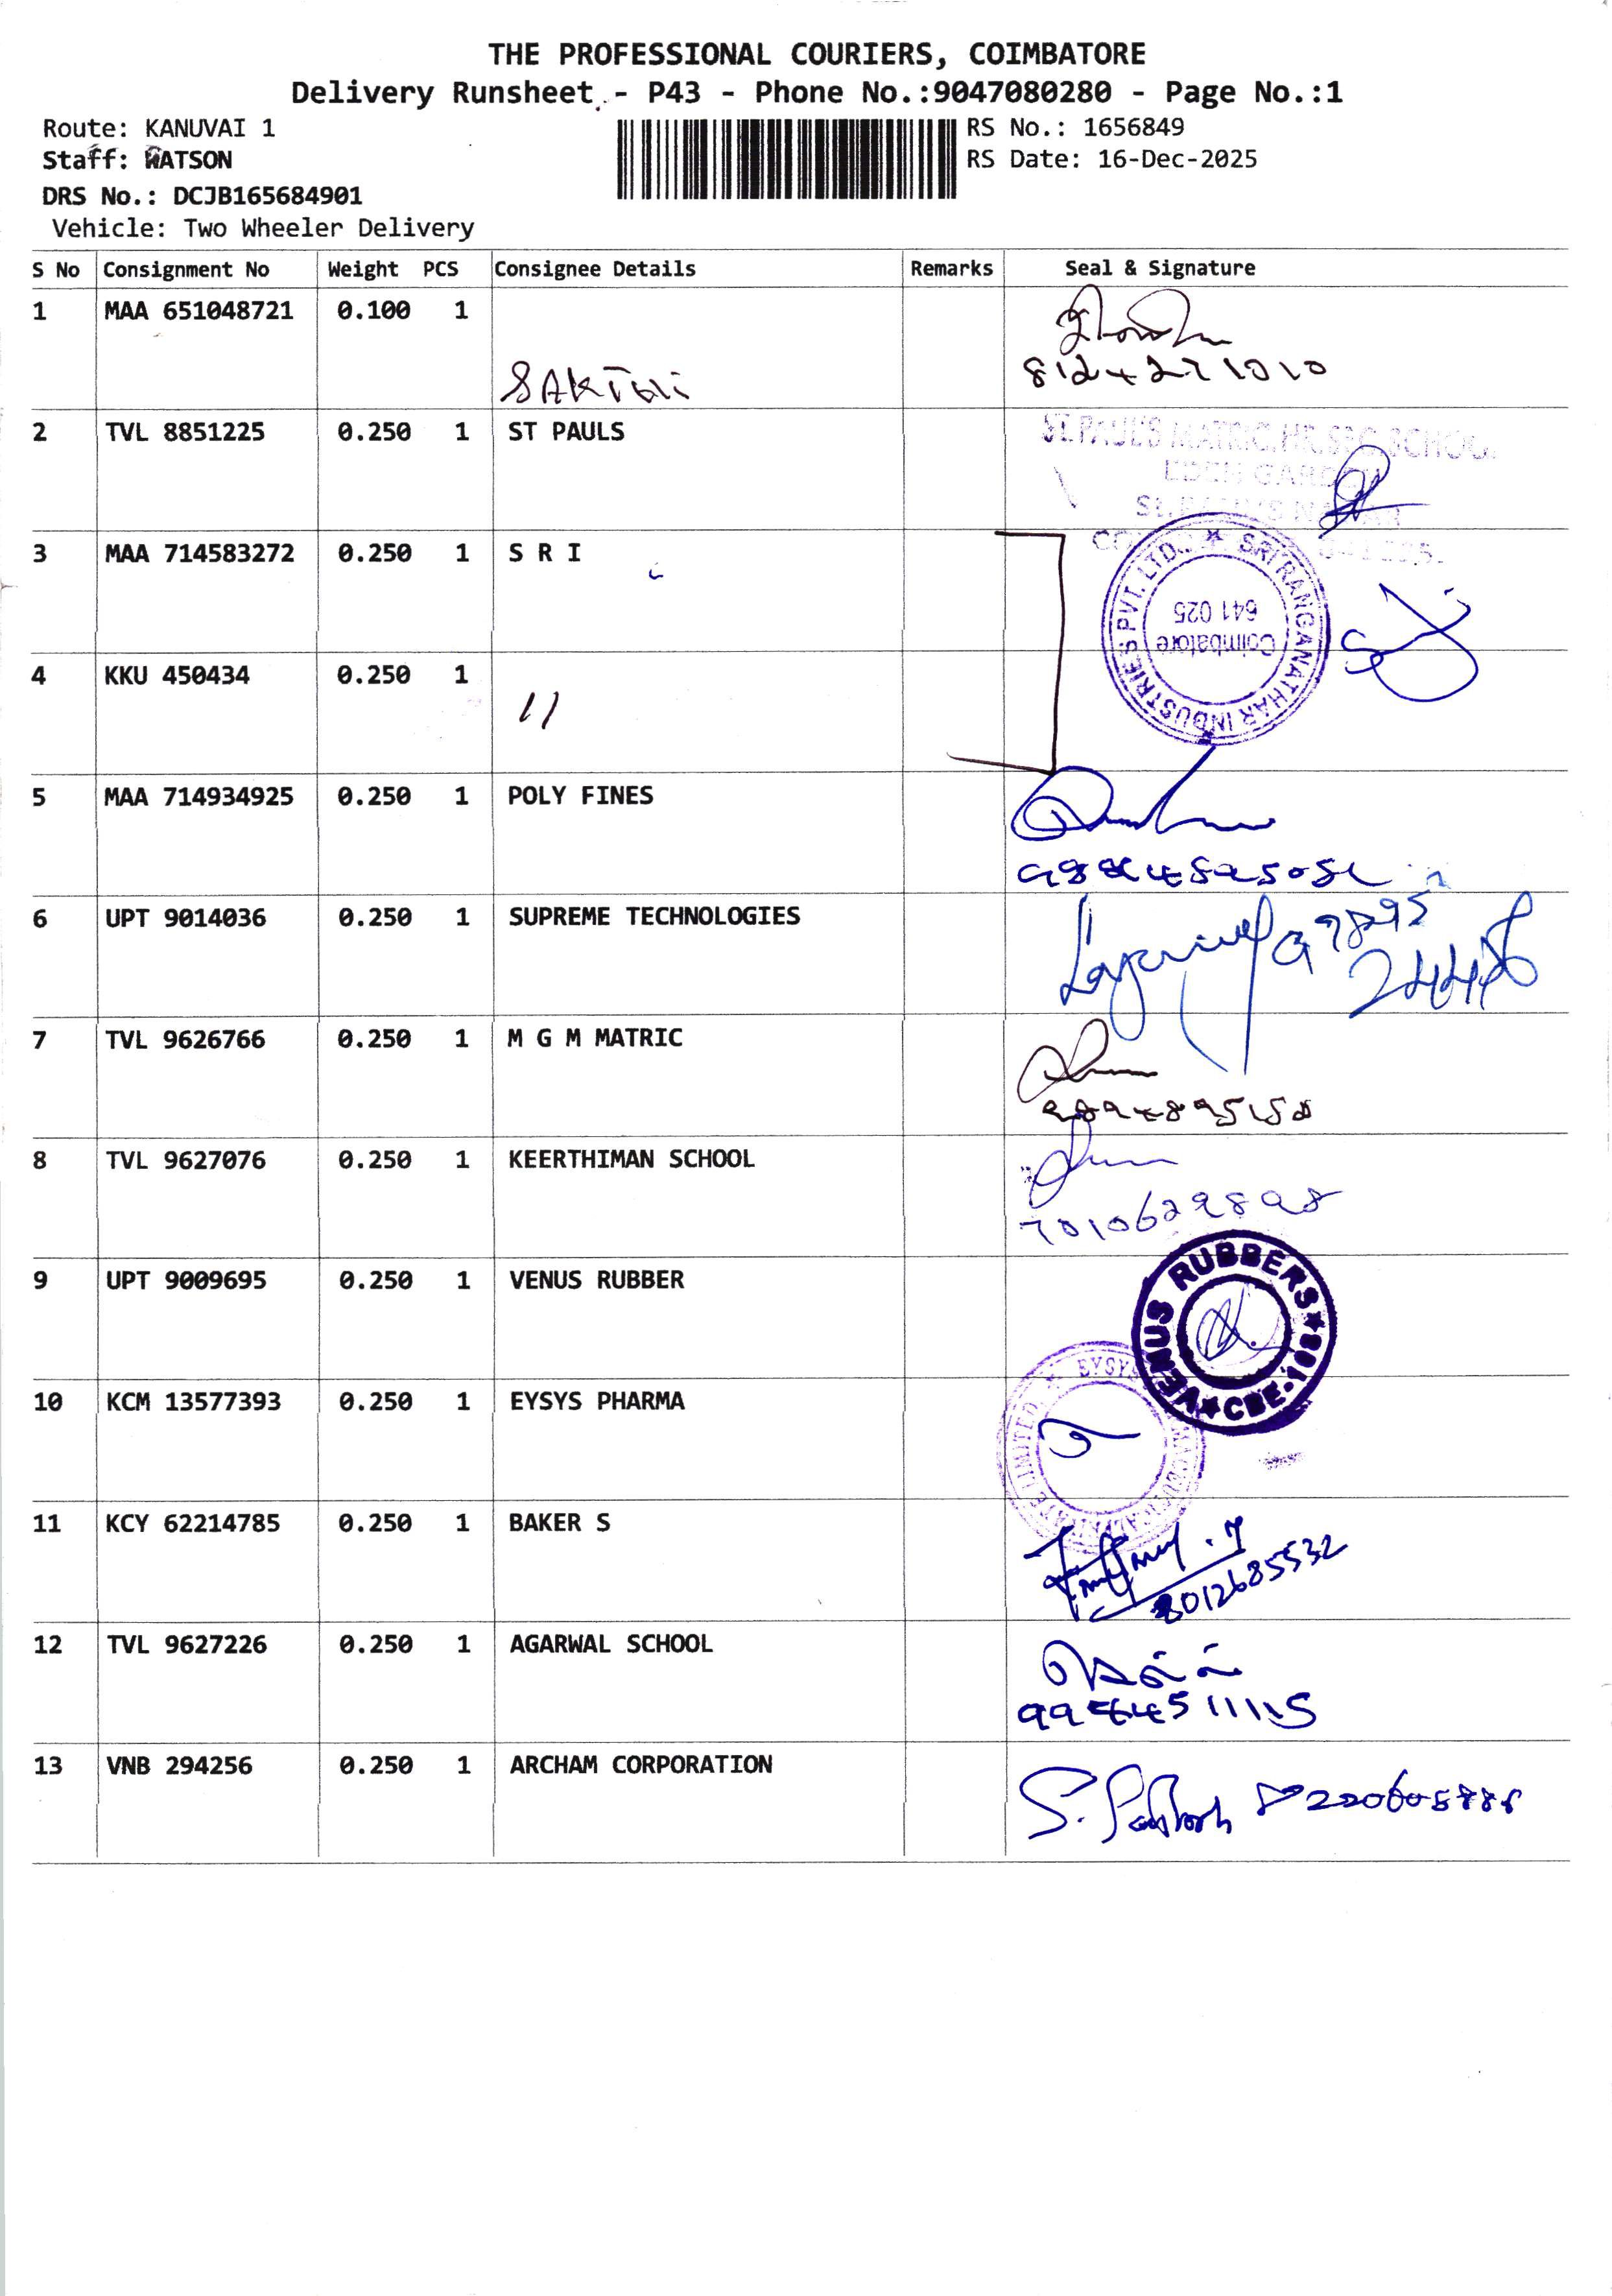 THE PROFESSIONAL COURIERS, COIMBATORE
Delivery Runsheet - P43 - Phone No.:9047080280 - Page No.:1
Route: KANUVAI 1
RS No.: 1656849
Staff: WATSON
RS Date: 16-Dec-2025
DRS No.: DCJB165684901
Vehicle: Two Wheeler Delivery
S No Consignment No Weight PCS Consignee Details Remarks Seal & Signature
1 MAA 651048721 0.100 1
SAKTHi
2 TVL 8851225 0.250 1 ST PAULS
ST.PAUL'S MATRIC.HR.SEC.SCHOOL
EDEN GARDEN
3 MAA 714583272 0.250 1 S R I
SRI RANGANATHAR INDUSTRIES PVT. LTD.
Coimbatore
641 025
4 KKU 450434 0.250 1
11
5 MAA 714934925 0.250 1 POLY FINES
6 UPT 9014036 0.250 1 SUPREME TECHNOLOGIES
7 TVL 9626766 0.250 1 M G M MATRIC
8 TVL 9627076 0.250 1 KEERTHIMAN SCHOOL
7010629898
9 UPT 9009695 0.250 1 VENUS RUBBER
VENUS RUBBERS ★ CBE-108 ★
10 KCM 13577393 0.250 1 EYSYS PHARMA
11 KCY 62214785 0.250 1 BAKER S
8012685532
12 TVL 9627226 0.250 1 AGARWAL SCHOOL
13 VNB 294256 0.250 1 ARCHAM CORPORATION